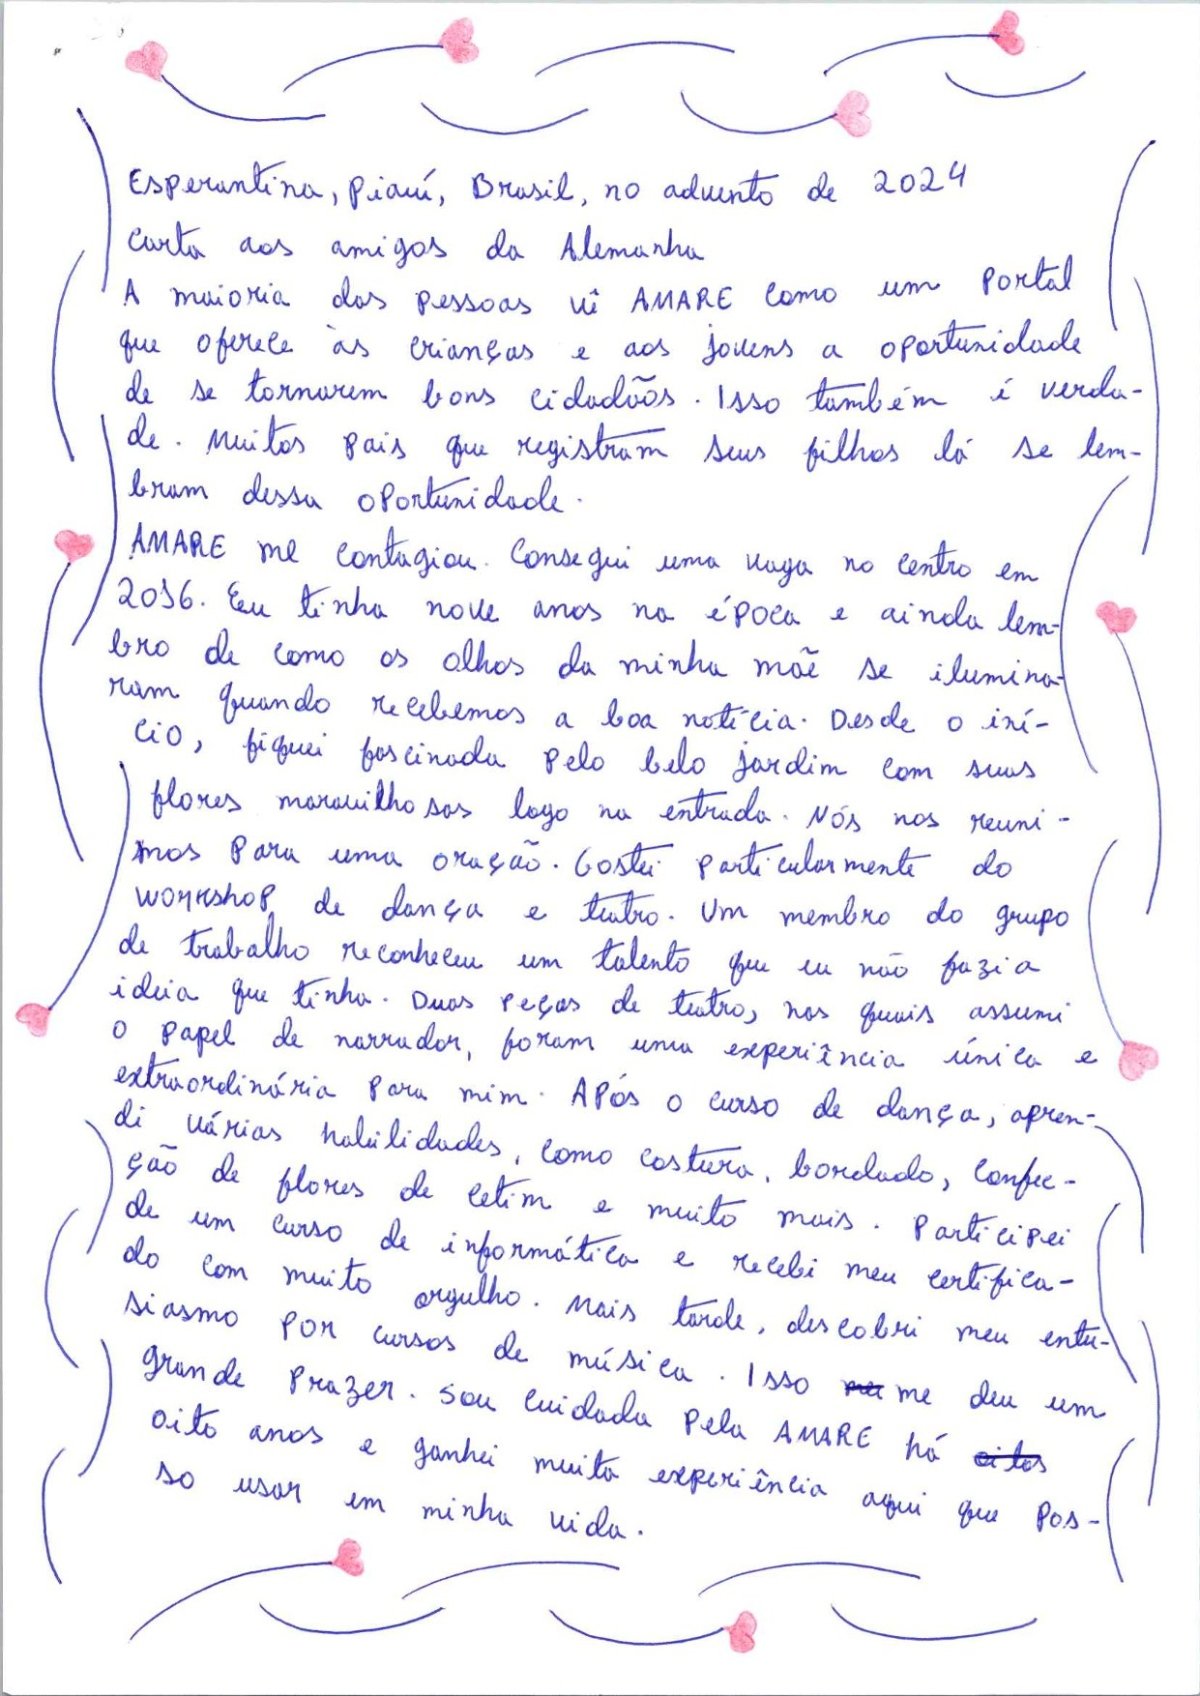 Esperantina, Piauí, Brasil, no advento de 2024
Carta aos amigos da Alemanha
A maioria das pessoas vê AMARE como um portal
que oferece às crianças e aos jovens a oportunidade
de se tornarem bons cidadãos. Isso também é verda-
de. Muitos pais que registram seus filhos lá se lem-
bram dessa oportunidade.
AMARE me contagiou. Consegui uma vaga no centro em
2016. Eu tinha nove anos na época e ainda lem-
bro de como os olhos da minha mãe se ilumina-
ram quando recebemos a boa notícia. Desde o iní-
cio, fiquei fascinada pelo belo jardim com suas
flores maravilhosas logo na entrada. Nós nos reuni-
mos para uma oração. Gostei particularmente do
workshop de dança e teatro. Um membro do grupo
de trabalho reconheceu um talento que eu não fazia
ideia que tinha. Duas peças de teatro, nas quais assumi
o papel de narrador, foram uma experiência única e
extraordinária para mim. Após o curso de dança, apren-
di várias habilidades, como costura, bordado, confec-
ção de flores de cetim e muito mais. Participei
de um curso de informática e recebi meu certifica-
do com muito orgulho. Mais tarde, descobri meu entu-
siasmo por cursos de música. Isso me deu um
grande prazer. Sou cuidada pela AMARE há oitos
oito anos e ganhei muita experiência aqui que pos-
so usar em minha vida.